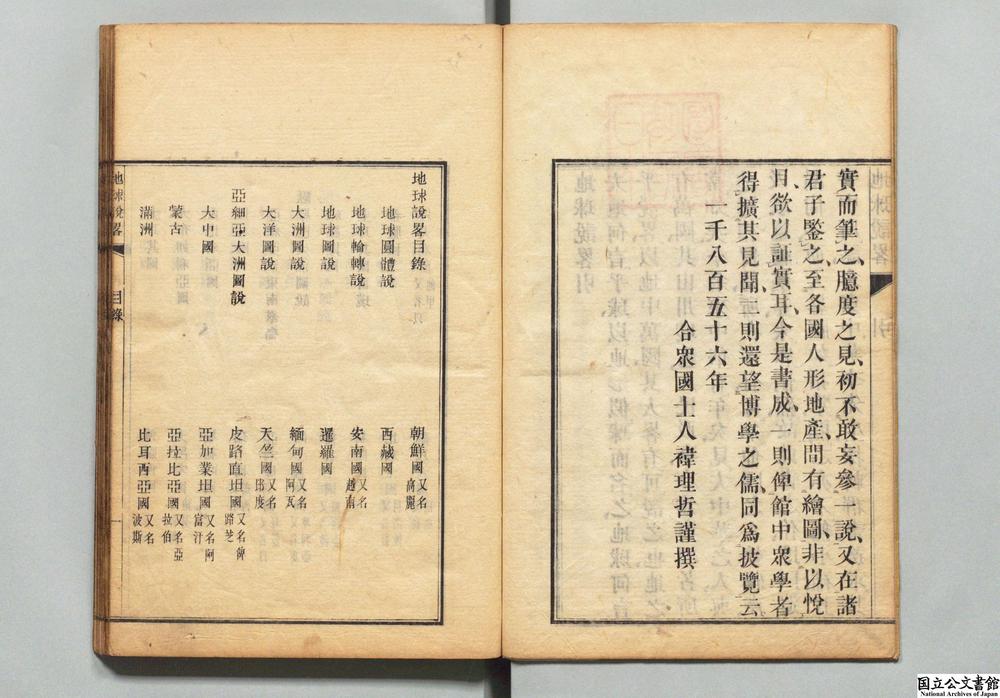 實而筆之、臆度之見、初不敢妄參一說、又在諸
君子鑒之、至各國人形地產、間有繪圖、非以悅
目、欲以証實耳、今是書成、一則俾館中眾學者
得擴其見聞、二則還望博學之儒、同爲披覽云、
一千八百五十六年
合衆國士人褘理哲謹撰
地球說畧目錄
地球圓體說
地球輪轉說
地球圖說
大洲圖說
大洋圖說
亞細亞大洲圖說
大中國
蒙古
滿洲
朝鮮國 又名高麗
西域國
安南國 又名越南
暹羅國
緬甸國 又名阿瓦
天竺國 又名印度
皮路直坦國 又名俾路芝
亞加業坦國 又名阿富汗
亞拉比亞國 又名亞拉伯
比耳西亞國 又名波斯
地球說畧 目錄 一
国立公文書館
National Archives of Japan